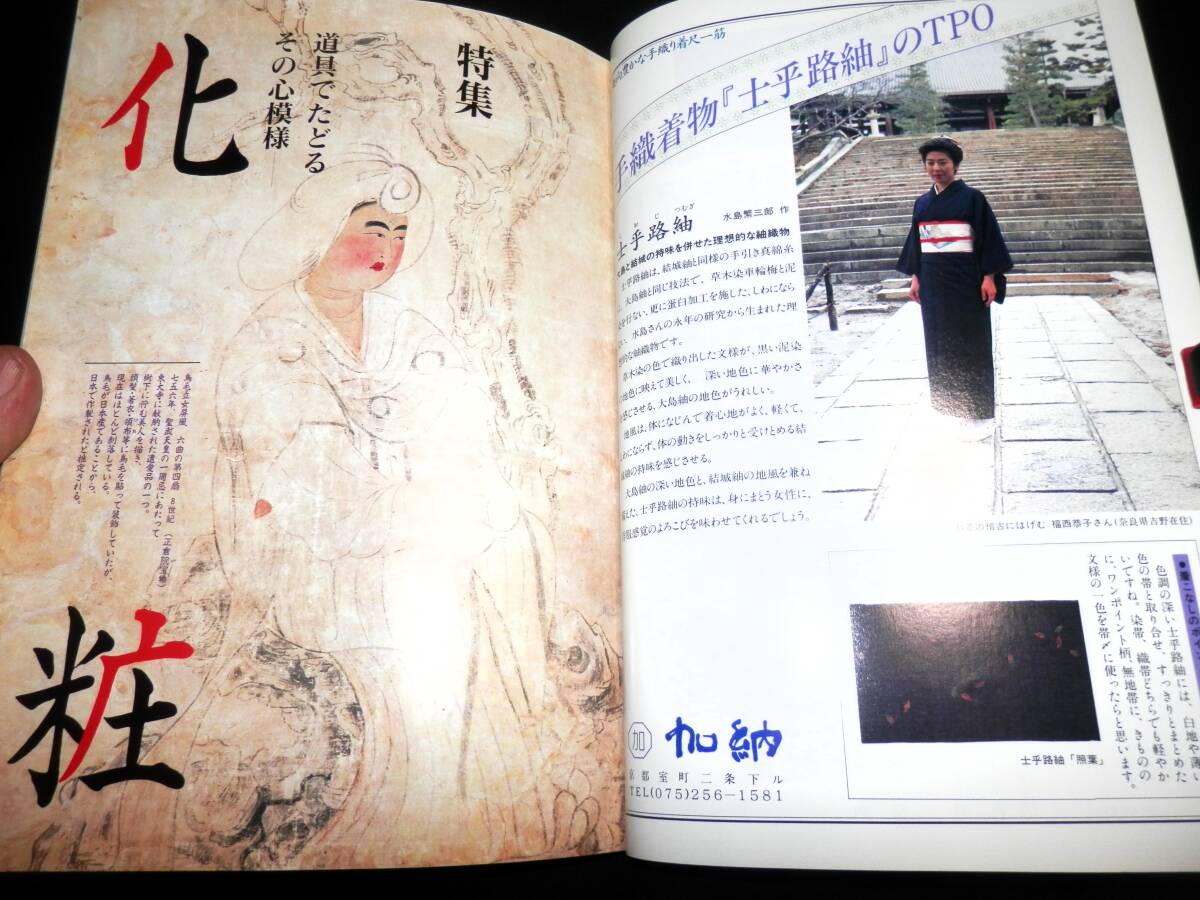 特集
道具でたどる
その心模様
化
粧
鳥毛立女屏風 六曲の第四扇 8世紀(正倉院宝物)
七五六年、聖武天皇の一周忌にあたって
東大寺に献納された遺愛品の一つ。
樹下に佇む美人を描き、
頭髪・着衣・頒布等に鳥毛を貼って装飾していたが、
現在はほとんど剝落している。
鳥毛が日本産であることから、
日本で作製されたと推定される。
豊かな手織り着尺一筋
手織着物『士乎路紬』のTPO
おじつむぎ
士乎路紬 水島繁三郎 作
大島と結城の持味を併せた理想的な紬織物
士乎路紬は、結城紬と同様の手引き真綿糸
大島紬と同じ技法で、草木染車輪梅と泥
を行ない、更に蛋白加工を施した、しわになら
い、水島さんの永年の研究から生まれた理
的な紬織物です。
草木染の色で織り出した文様が、黒い泥染
地色に映えて美しく、深い地色に華やかさ
感じさせる、大島紬の地色がうれしい。
地風は、体になじんで着心地がよく、軽くて、
わにならず、体の動きをしっかりと受けとめる結
紬の持味を感じさせる。
大島紬の深い地色と、結城紬の地風を兼ね
備えた、士乎路紬の持味は、身にまとう女性に、
服感覚のよろこびを味わせてくれるでしょう。
加
加納
京都室町二条下ル
TEL(075)256-1581
の稽古にはげむ 福西恭子さん(奈良県吉野在住)
●着こなしのポイ
色調の深い士乎路紬には、白地や薄
色の帯と取り合せ、すっきりとまとめた
いですね。染帯、織帯どちらでも軽やか
に、ワンポイント柄、無地帯に、きものの
文様の一色を帯〆に使ったらと思います。
士乎路紬「照葉」